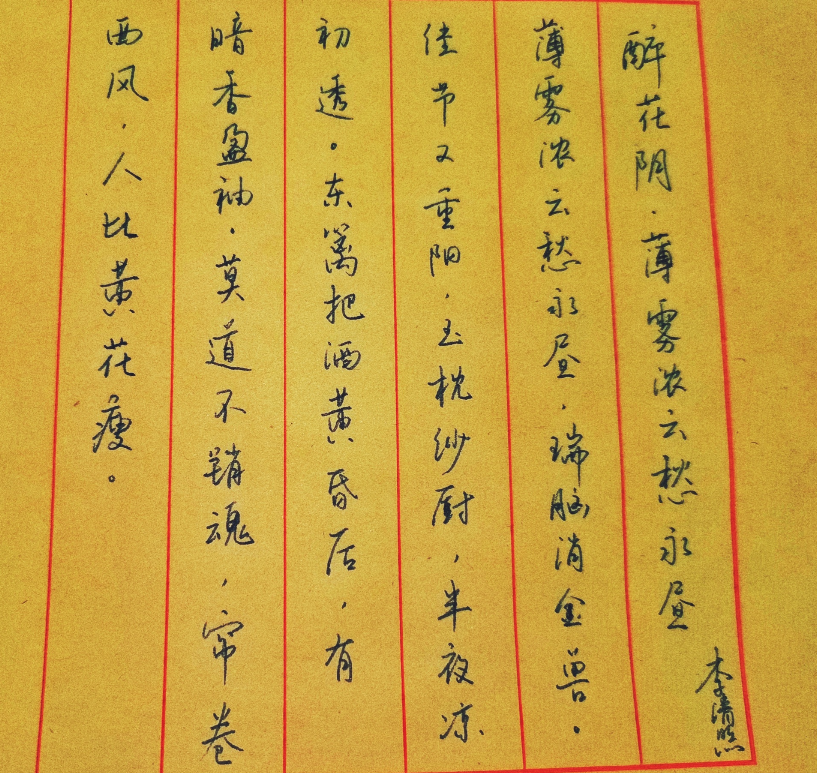 醉花阴·薄雾浓云愁永昼
李清照
薄雾浓云愁永昼，瑞脑消金兽。
佳节又重阳，玉枕纱厨，半夜凉
初透。东篱把酒黄昏后，有
暗香盈袖，莫道不销魂，帘卷
西风，人比黄花瘦。